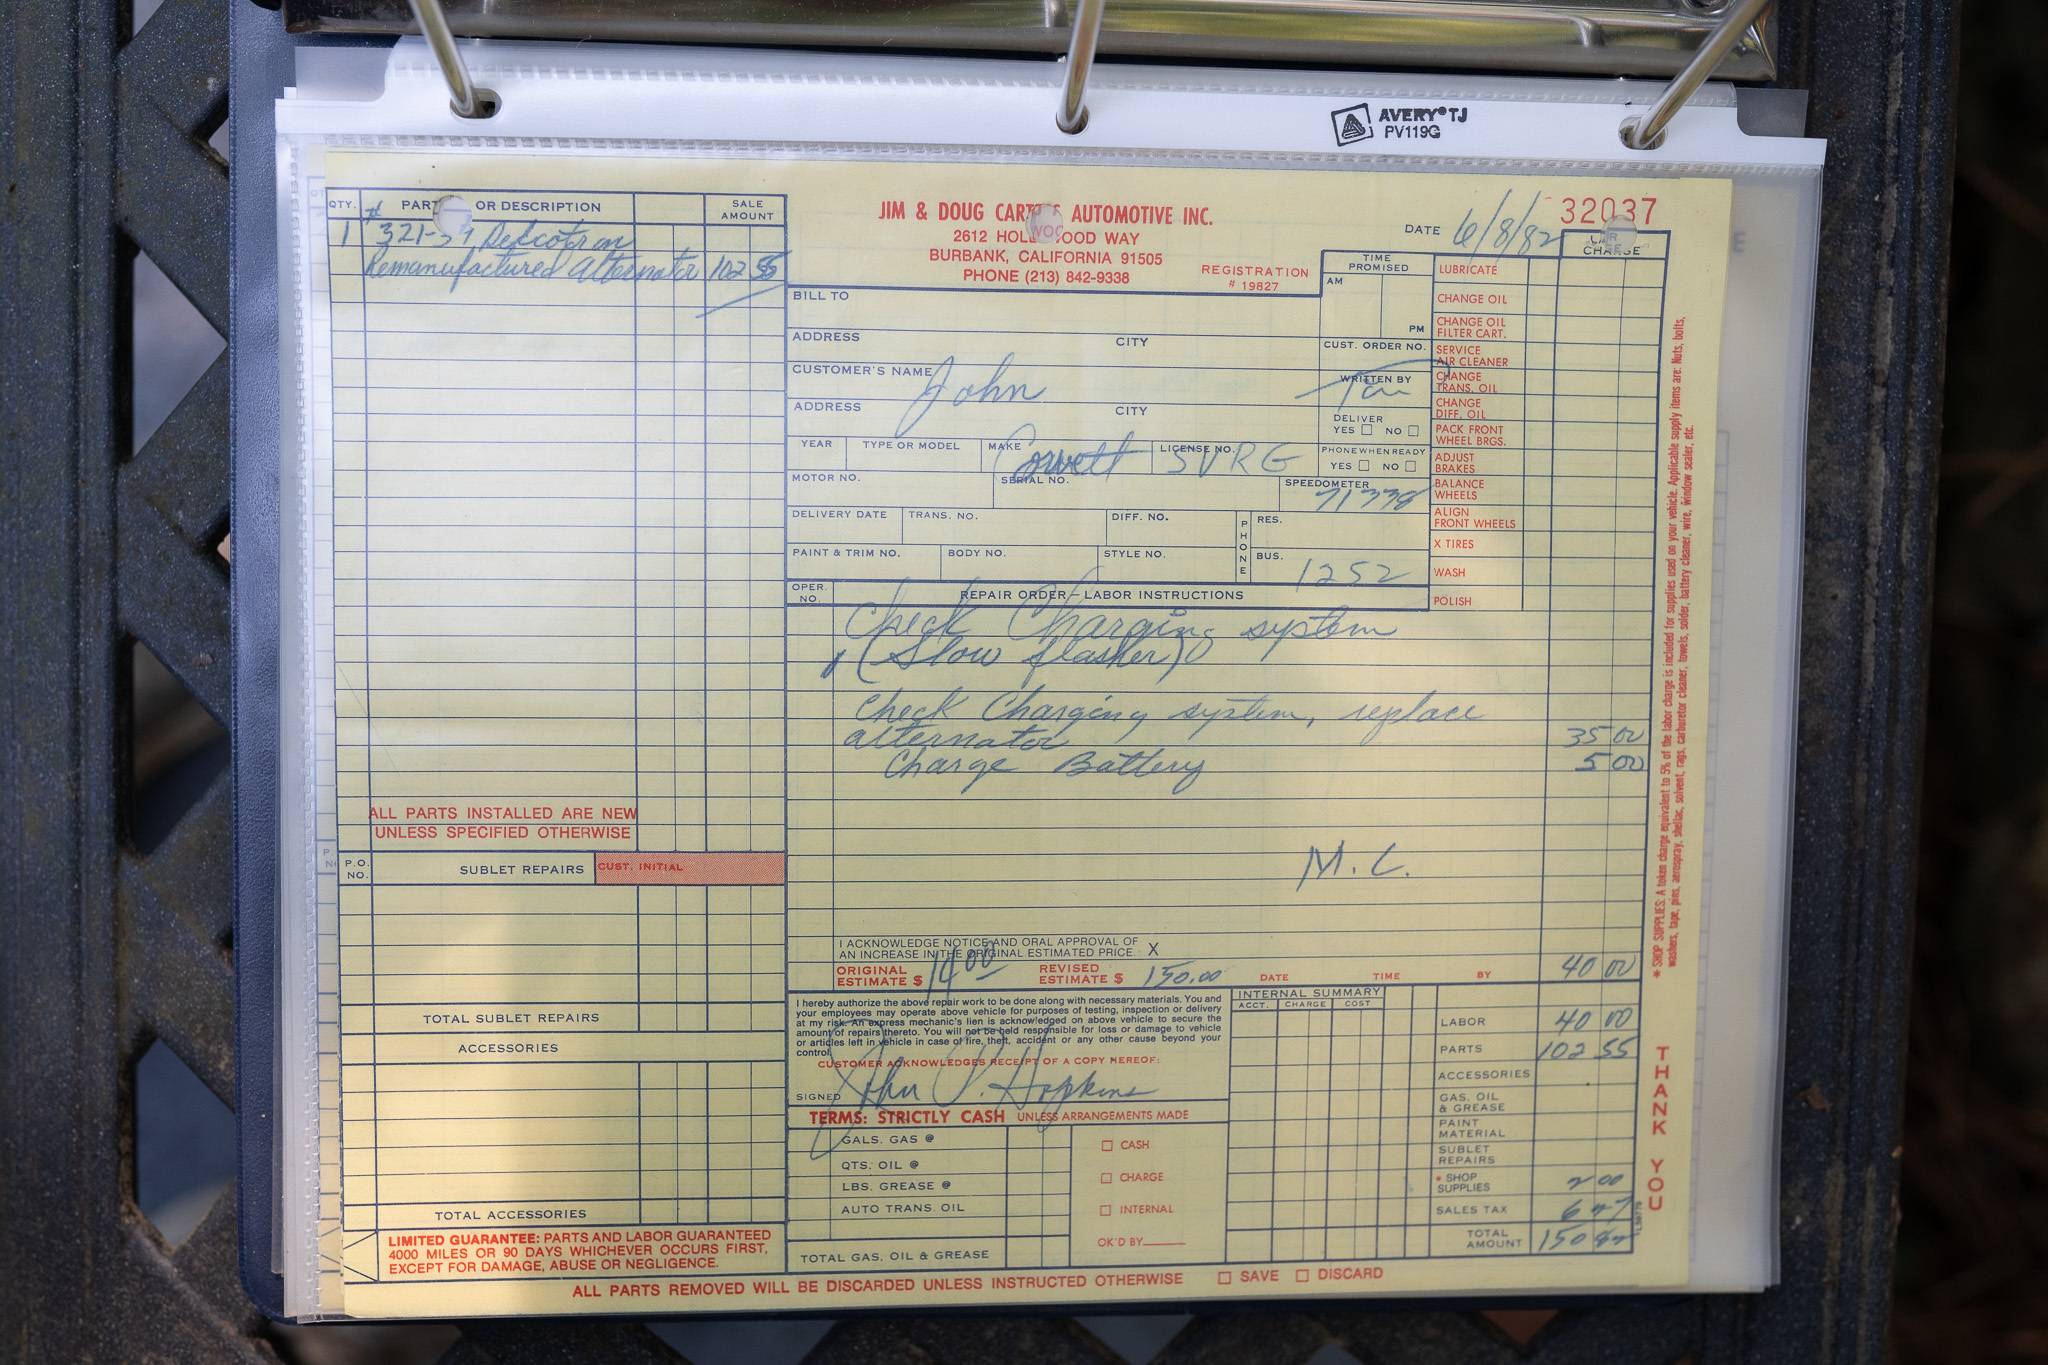 AVERY® TJ
PV119G
QTY. PART OR DESCRIPTION SALE AMOUNT
1 # 321- Delcotron
Remanufactured Alternator 102 55
ALL PARTS INSTALLED ARE NEW
UNLESS SPECIFIED OTHERWISE
P.O. NO. SUBLET REPAIRS CUST. INITIAL
TOTAL SUBLET REPAIRS
ACCESSORIES
TOTAL ACCESSORIES
LIMITED GUARANTEE: PARTS AND LABOR GUARANTEED
4000 MILES OR 90 DAYS WHICHEVER OCCURS FIRST,
EXCEPT FOR DAMAGE, ABUSE OR NEGLIGENCE.
JIM & DOUG AUTOMOTIVE INC.
2612 HOLLYWOOD WAY
BURBANK, CALIFORNIA 91505
PHONE (213) 842-9338
REGISTRATION
# 19827
DATE 6/8/82
32037
CAR CHARGE
TIME PROMISED
AM
PM
BILL TO
ADDRESS CITY
CUST. ORDER NO.
CUSTOMER'S NAME John
WRITTEN BY
ADDRESS CITY
DELIVER
YES NO
YEAR TYPE OR MODEL MAKE Corvett LICENSE NO. SVRG
PHONE WHEN READY
YES NO
MOTOR NO. SERIAL NO. SPEEDOMETER 71338
DELIVERY DATE TRANS. NO. DIFF. NO. PHONE RES.
PAINT & TRIM NO. BODY NO. STYLE NO. BUS. 1252
LUBRICATE
CHANGE OIL
CHANGE OIL
FILTER CART.
SERVICE
AIR CLEANER
CHANGE
TRANS. OIL
CHANGE
DIFF. OIL
PACK FRONT
WHEEL BRGS.
ADJUST
BRAKES
BALANCE
WHEELS
ALIGN
FRONT WHEELS
X TIRES
WASH
POLISH
OPER. NO. REPAIR ORDER – LABOR INSTRUCTIONS
Check Charging system
(Slow flasher)
Check Charging system, replace
alternator 35 00
Charge Battery 5 00
M.C.
I ACKNOWLEDGE NOTICE AND ORAL APPROVAL OF
AN INCREASE IN THE ORIGINAL ESTIMATED PRICE. X
ORIGINAL ESTIMATE $ 14.00 REVISED ESTIMATE $ 150.00 DATE TIME BY 40 00
I hereby authorize the above repair work to be done along with necessary materials. You and
your employees may operate above vehicle for purposes of testing, inspection or delivery
at my risk. An express mechanic's lien is acknowledged on above vehicle to secure the
amount of repairs thereto. You will not be held responsible for loss or damage to vehicle
or articles left in vehicle in case of fire, theft, accident or any other cause beyond your
control.
CUSTOMER ACKNOWLEDGES RECEIPT OF A COPY HEREOF:
SIGNED John P. Hopkins
TERMS: STRICTLY CASH UNLESS ARRANGEMENTS MADE
GALS. GAS @
QTS. OIL @
LBS. GREASE @
AUTO TRANS. OIL
TOTAL GAS, OIL & GREASE
CASH
CHARGE
INTERNAL
OK'D BY
INTERNAL SUMMARY
ACCT. CHARGE COST
LABOR 40 00
PARTS 102 55
ACCESSORIES
GAS, OIL
& GREASE
PAINT
MATERIAL
SUBLET
REPAIRS
* SHOP
SUPPLIES 2 00
SALES TAX 6
TOTAL
AMOUNT 150
ALL PARTS REMOVED WILL BE DISCARDED UNLESS INSTRUCTED OTHERWISE SAVE DISCARD
* SHOP SUPPLIES: A token charge equivalent to 5% of the labor charge is included for supplies used on your vehicle. Applicable supply items are: Nuts, bolts,
washers, tape, pins, aerospray, shellac, solvent, rags, carburetor cleaner, towels, solder, battery cleaner, wire, window sealer, etc.
THANK YOU